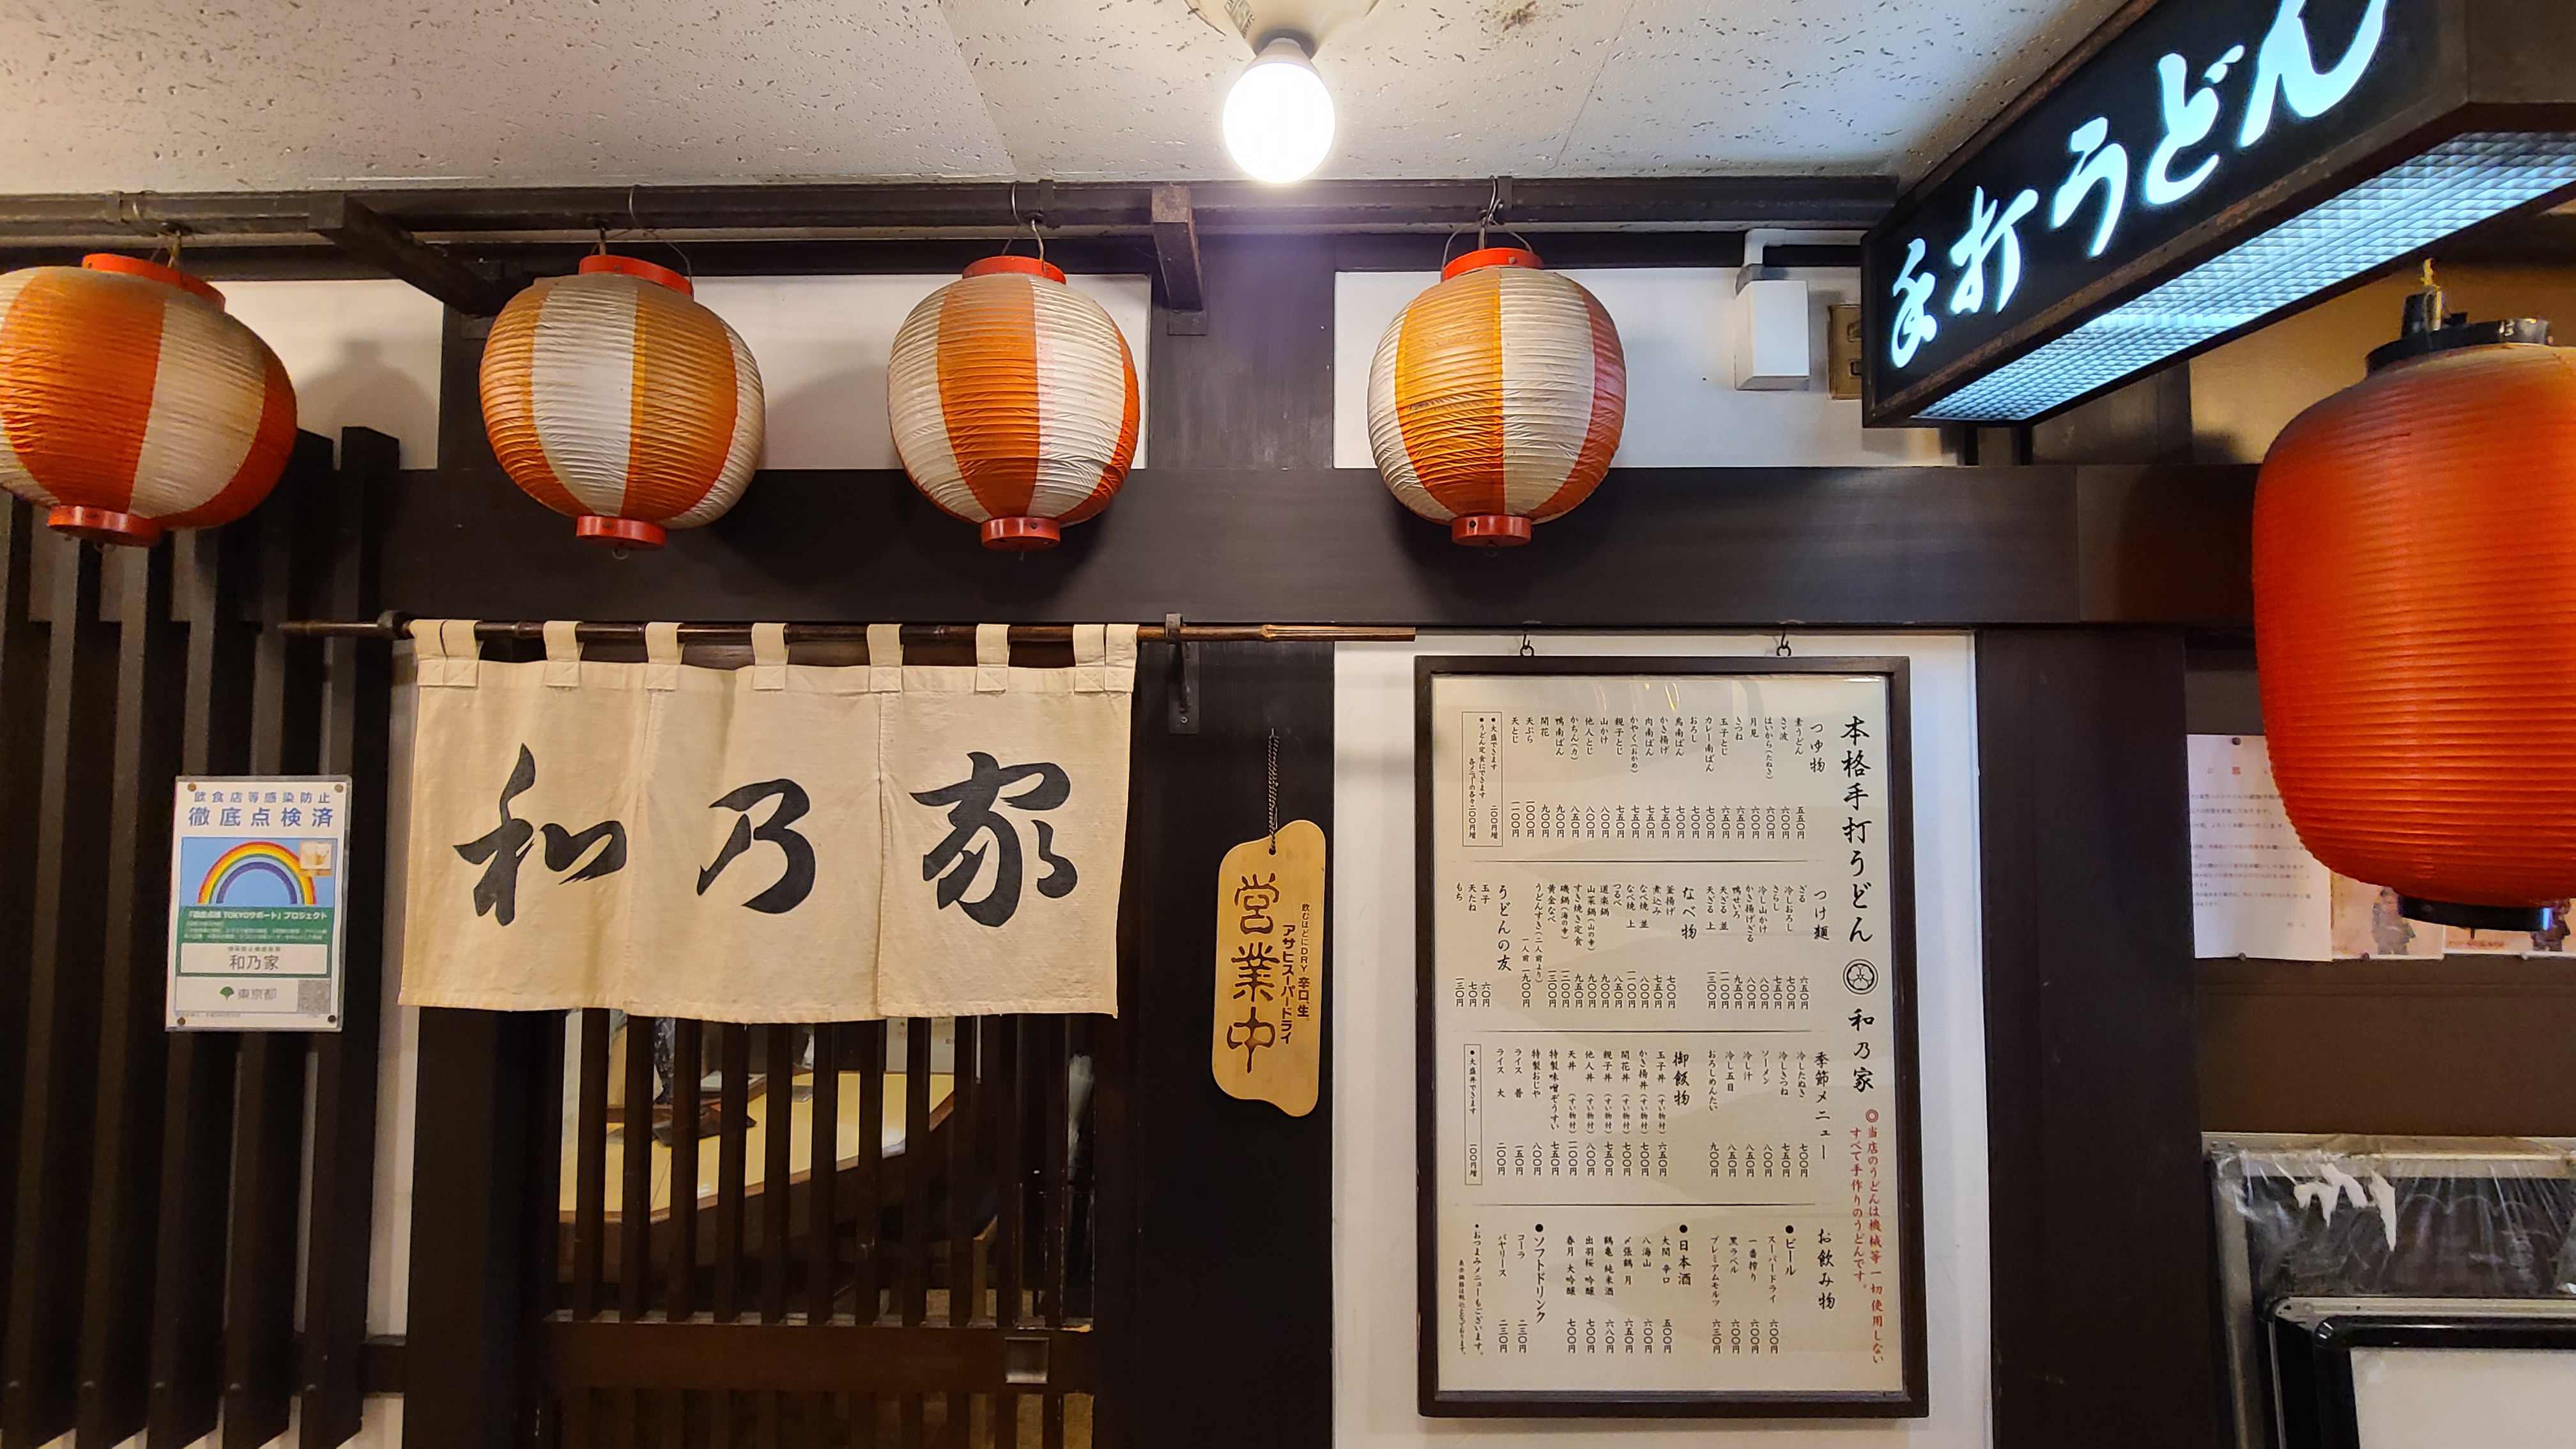 手打うどん
和乃家
飲食店等感染防止
徹底点検済
「徹底点検 TOKYOサポート」プロジェクト
和乃家
東京都
営業中
飲むほどにDRY 辛口、生。
アサヒスーパードライ
本格手打うどん 和乃家
◎当店のうどんは機械等一切使用しない
すべて手作りのうどんです。
つゆ物
素うどん 五五〇円
さゞ波 六〇〇円
はいから(たぬき) 六〇〇円
月見 六〇〇円
きつね 六五〇円
玉子とじ 六五〇円
カレー南ばん 七〇〇円
おろし 七〇〇円
鳥南ばん 七〇〇円
かき揚げ 七五〇円
肉南ばん 七五〇円
かやく(おかめ) 七五〇円
親子とじ 七五〇円
山かけ 八〇〇円
他人とじ 八〇〇円
かちん(力) 八五〇円
鴨南ばん 九〇〇円
開花 九〇〇円
天ぷら 一〇〇〇円
天とじ 一一〇〇円
●大盛できます 二〇〇円
●うどん定食にできます 各メニューの各々二〇〇円増
つけ麺
ざる 六五〇円
冷しおろし 七〇〇円
さらし 七五〇円
冷し山かけ 八〇〇円
かき揚げざる 八〇〇円
鴨せいろ 九五〇円
天ざる 並 一一〇〇円
天ざる 上 一三〇〇円
なべ物
釜揚げ 七〇〇円
煮込み 七五〇円
なべ焼 並 八〇〇円
なべ焼 上 一一〇〇円
つるべ 八五〇円
道楽鍋 九〇〇円
山菜鍋(山の寺) 九〇〇円
すき焼き定食 九五〇円
磯鍋(海の寺) 一二〇〇円
黄金なべ 一三〇〇円
うどんすき(二人前より) 一人前 一九〇〇円
うどんの友
玉子 六〇円
天たね 七〇円
もち 一三〇円
季節メニュー
冷したぬき 七〇〇円
冷しきつね 七五〇円
ソーメン 八〇〇円
冷し汁 八五〇円
冷し五目 八五〇円
おろしめんたい 九〇〇円
御飯物
玉子丼(すい物付) 六五〇円
かき揚丼(すい物付) 七〇〇円
開花丼(すい物付) 七〇〇円
親子丼(すい物付) 七五〇円
他人丼(すい物付) 八〇〇円
天丼(すい物付) 一一〇〇円
特製味噌ぞうすい 七五〇円
特製おじや 八〇〇円
ライス 普 一五〇円
ライス 大 二〇〇円
●大盛丼できます 一〇〇円増
お飲み物
●ビール
スーパードライ 六〇〇円
一番搾り 六〇〇円
黒ラベル 六〇〇円
プレミアムモルツ 六三〇円
●日本酒
大関 辛口 五〇〇円
八海山 六〇〇円
〆張鶴 月 六五〇円
鶴亀 純米酒 六八〇円
出羽桜 吟醸 七〇〇円
春月 大吟醸 七〇〇円
●ソフトドリンク
コーラ 二三〇円
バヤリース 二三〇円
●おつまみメニューもございます。